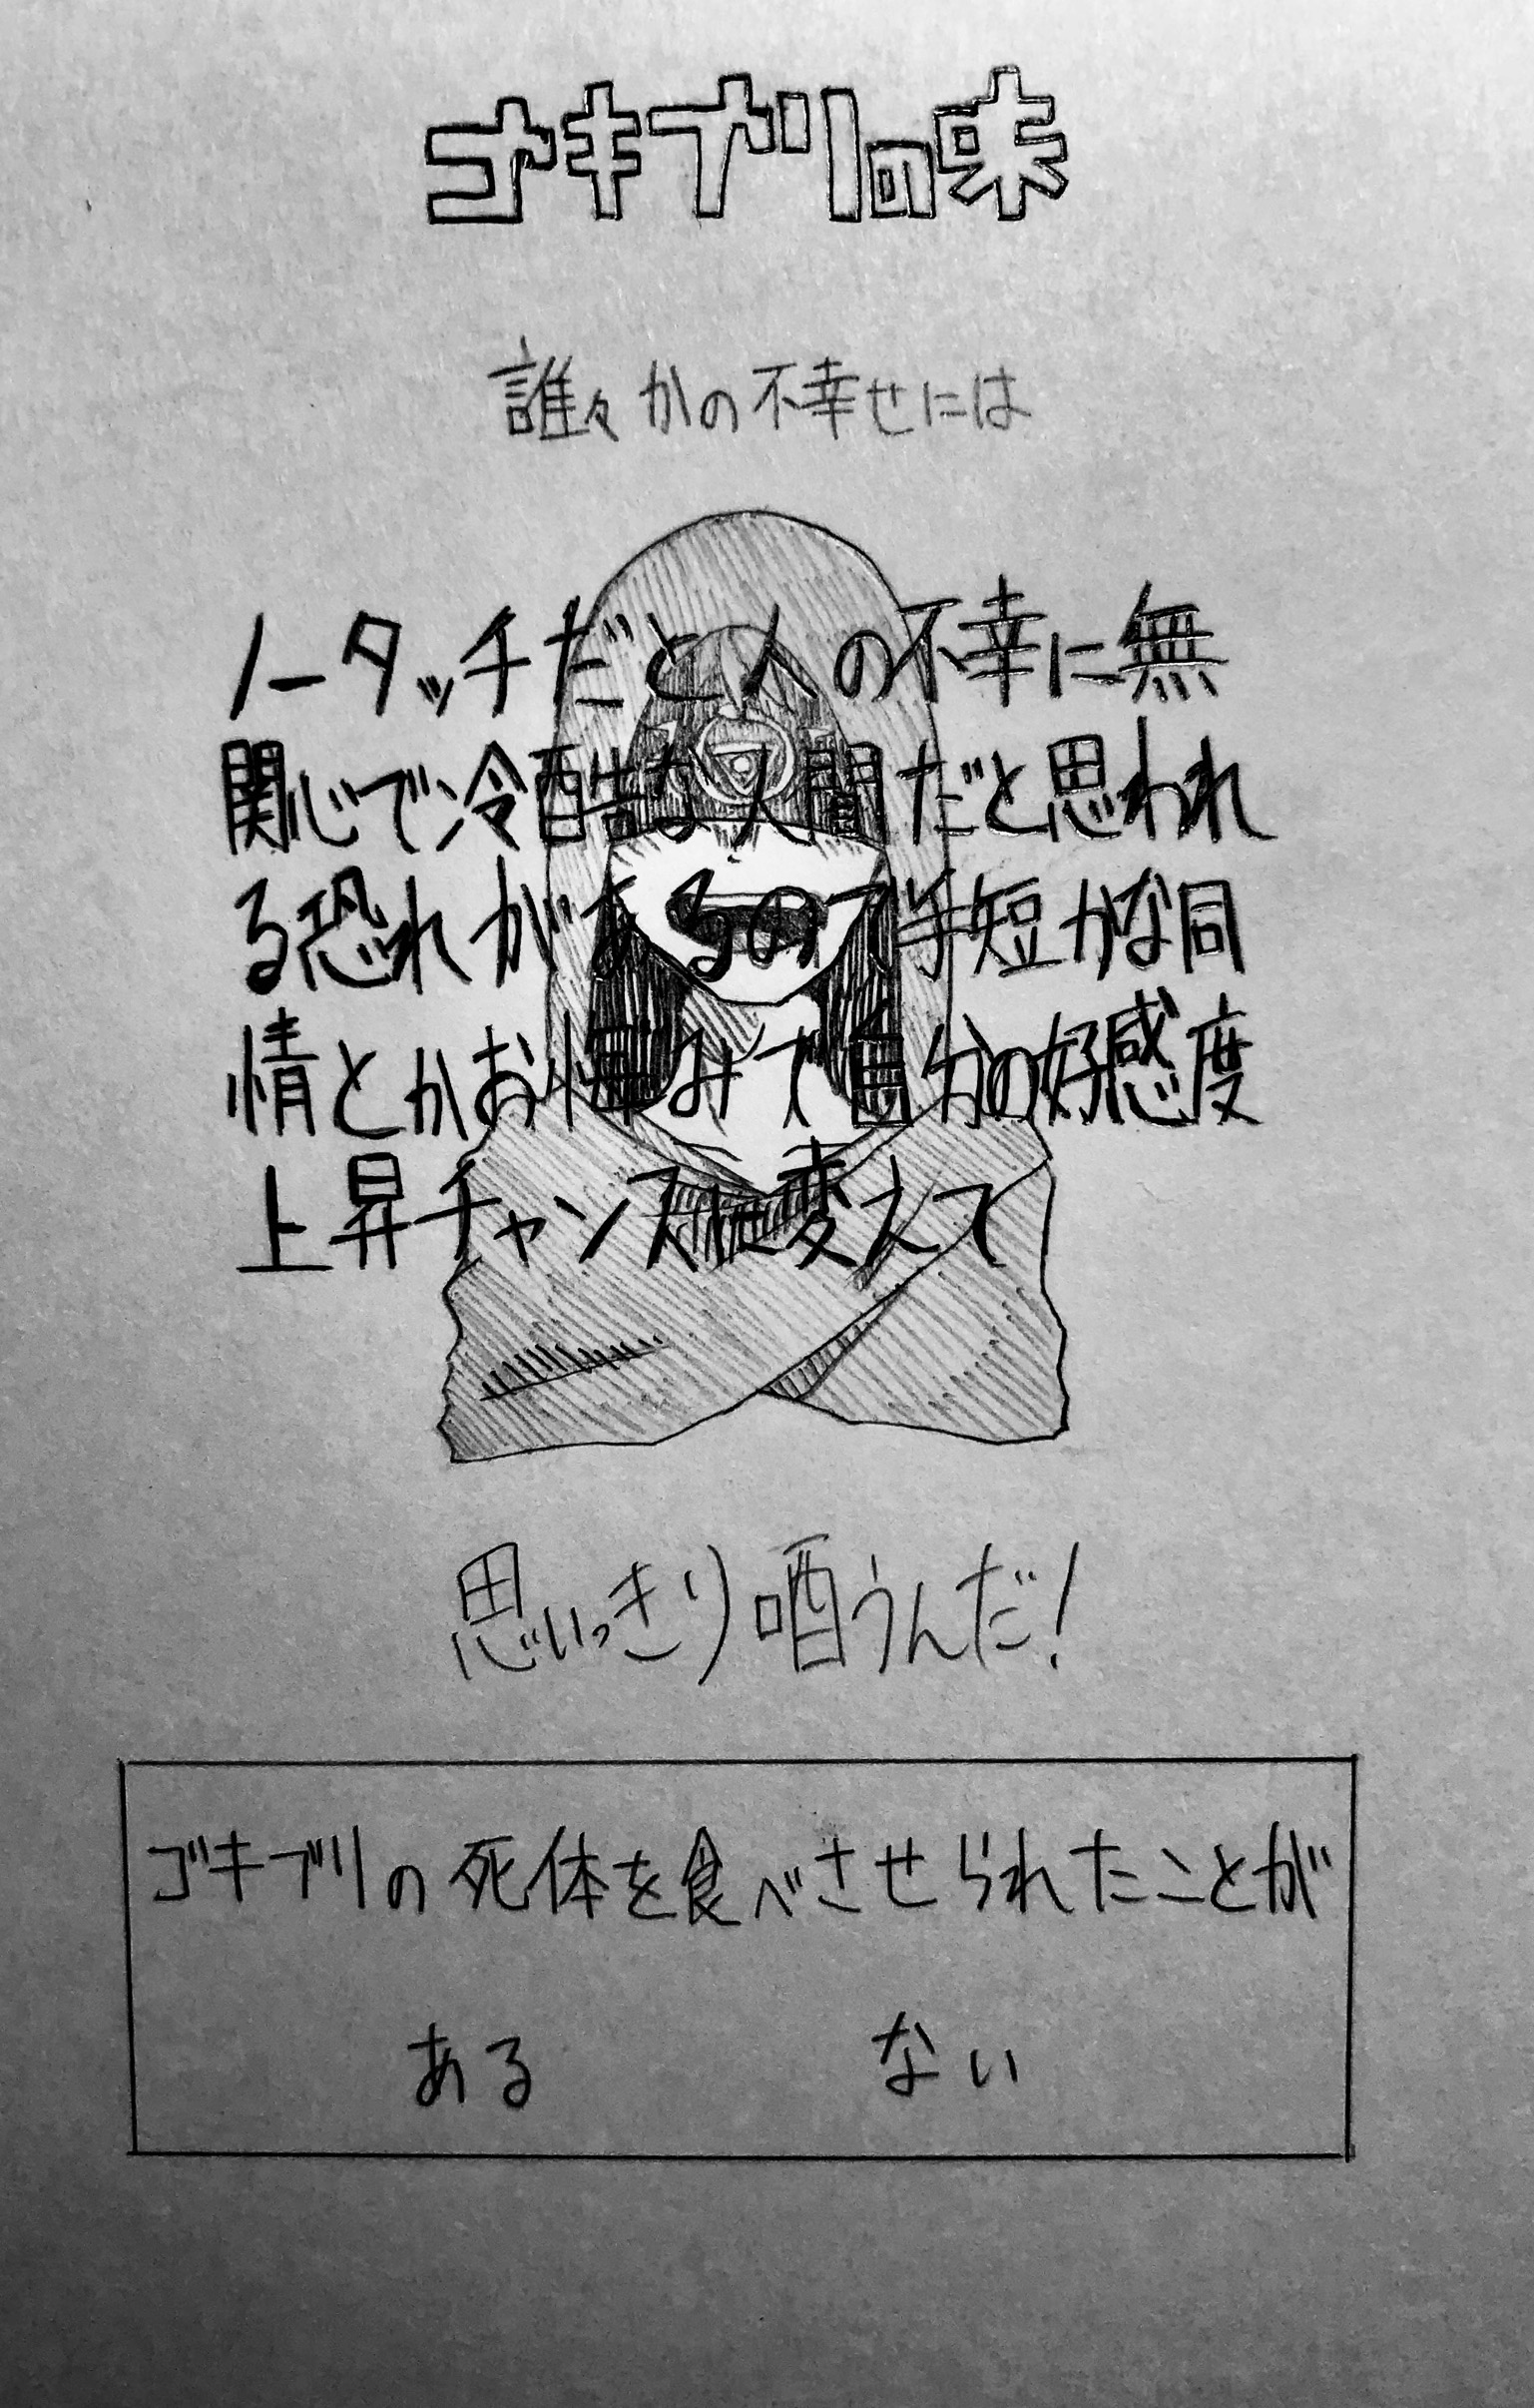 ゴキブリの味
誰々かの不幸せには
ノータッチだと人の不幸に無
関心で冷酷な人間だと思われ
る恐れがあるので手短かな同
情とかお悔みで自分の好感度
上昇チャンスに変えて
思いっきり哂うんだ!
ゴキブリの死体を食べさせられたことが
ある ない